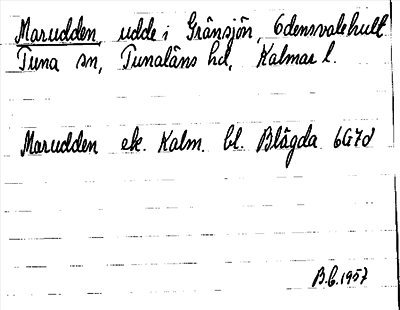 Marudden, udde i Gränsjön, Odensvalehult
Tuna sn, Tunaläns hd, Kalmar l.
Marudden ek. Kalm. bl. Blågda 6G7d
B.C.1957